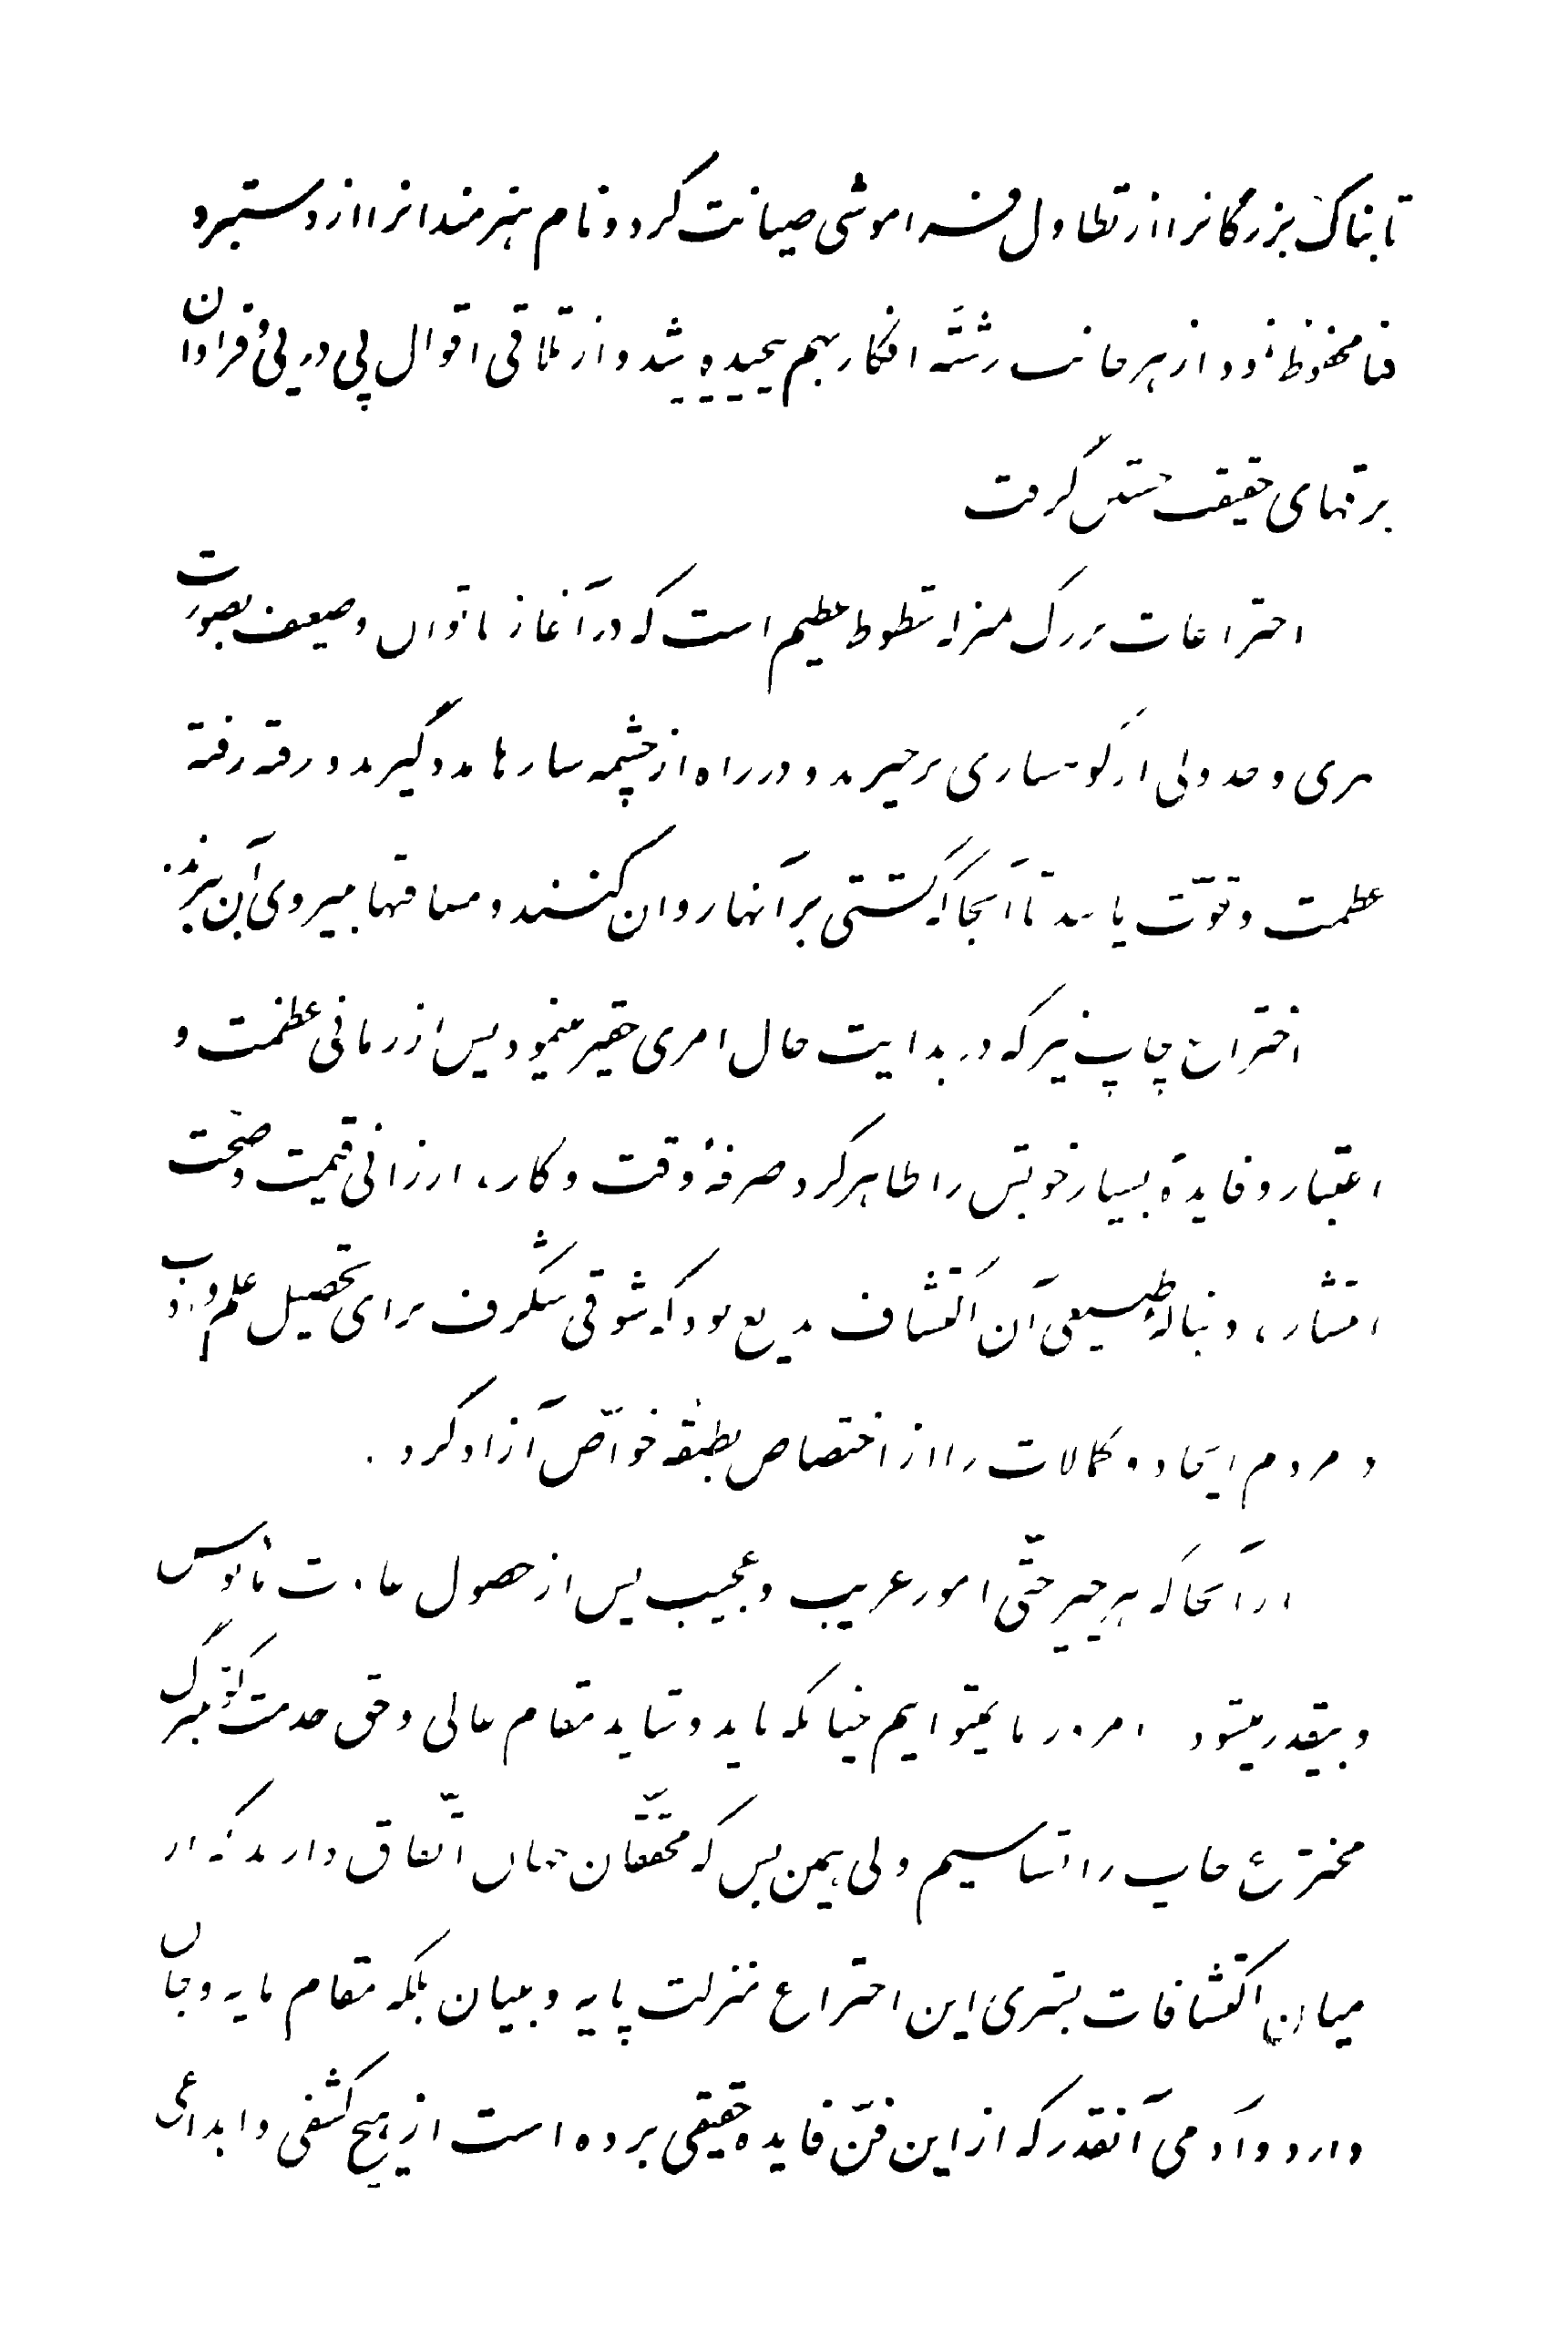 تابناک بزرگانرا از تطاول فراموشی صیانت کرد و نام هنرمندانرا از دستبرد
فنا محفوظ نمود و از هر جانب رشته افکار بهم پیچیده شد و از تلاقی اقوال پی در پی فراوان
برقهای حقیقت جستن گرفت
اختراعات بزرگ بمنزله شطوط عظیم است که در آغاز ناتوان و ضعیف بصورت
نهری و جدولی از کوهساری برخیزد و در راه از چشمه سارها مدد گیرد و رفته رفته
عظمت و قوّت یابد تا آنجا که کشتی بر آنها روان کنند و مسافتها بنیروی آن ببرند.
اختراع چاپ نیز که در بدایت حال امری حقیر مینمود پس از زمانی عظمت و
اعتبار و فایدهٔ بسیار خویش را ظاهر کرد صرفهٔ وقت و کار، ارزانی قیمت و صحّت
انتشار، دنبالهٔ طبیعی آن اکتشاف بدیع بود که شوقی شگرف برای تحصیل علم و ادب
در مردم ایجاد و کمالات را از اختصاص بطبقه خواصّ آزاد کرد.
از آنجا که هر چیز حتّی امور غریب و عجیب پس از حصول عادت مأنوس
و بیقدر میشود امروز ما نمیتوانیم چنانکه باید و شاید مقام عالی و حق خدمت گوتنبرگ
مخترع چاپ را بشناسیم ولی همین بس که محقّقان جهان اتّفاق دارند که از
میان اکتشافات بشری این اختراع منزلت پایه و بنیان بلکه مقام مایه و جان
دارد و آدمی آنقدر که از این فنّ فایده حقیقی برده است از هیچ کشفی و ابداعی